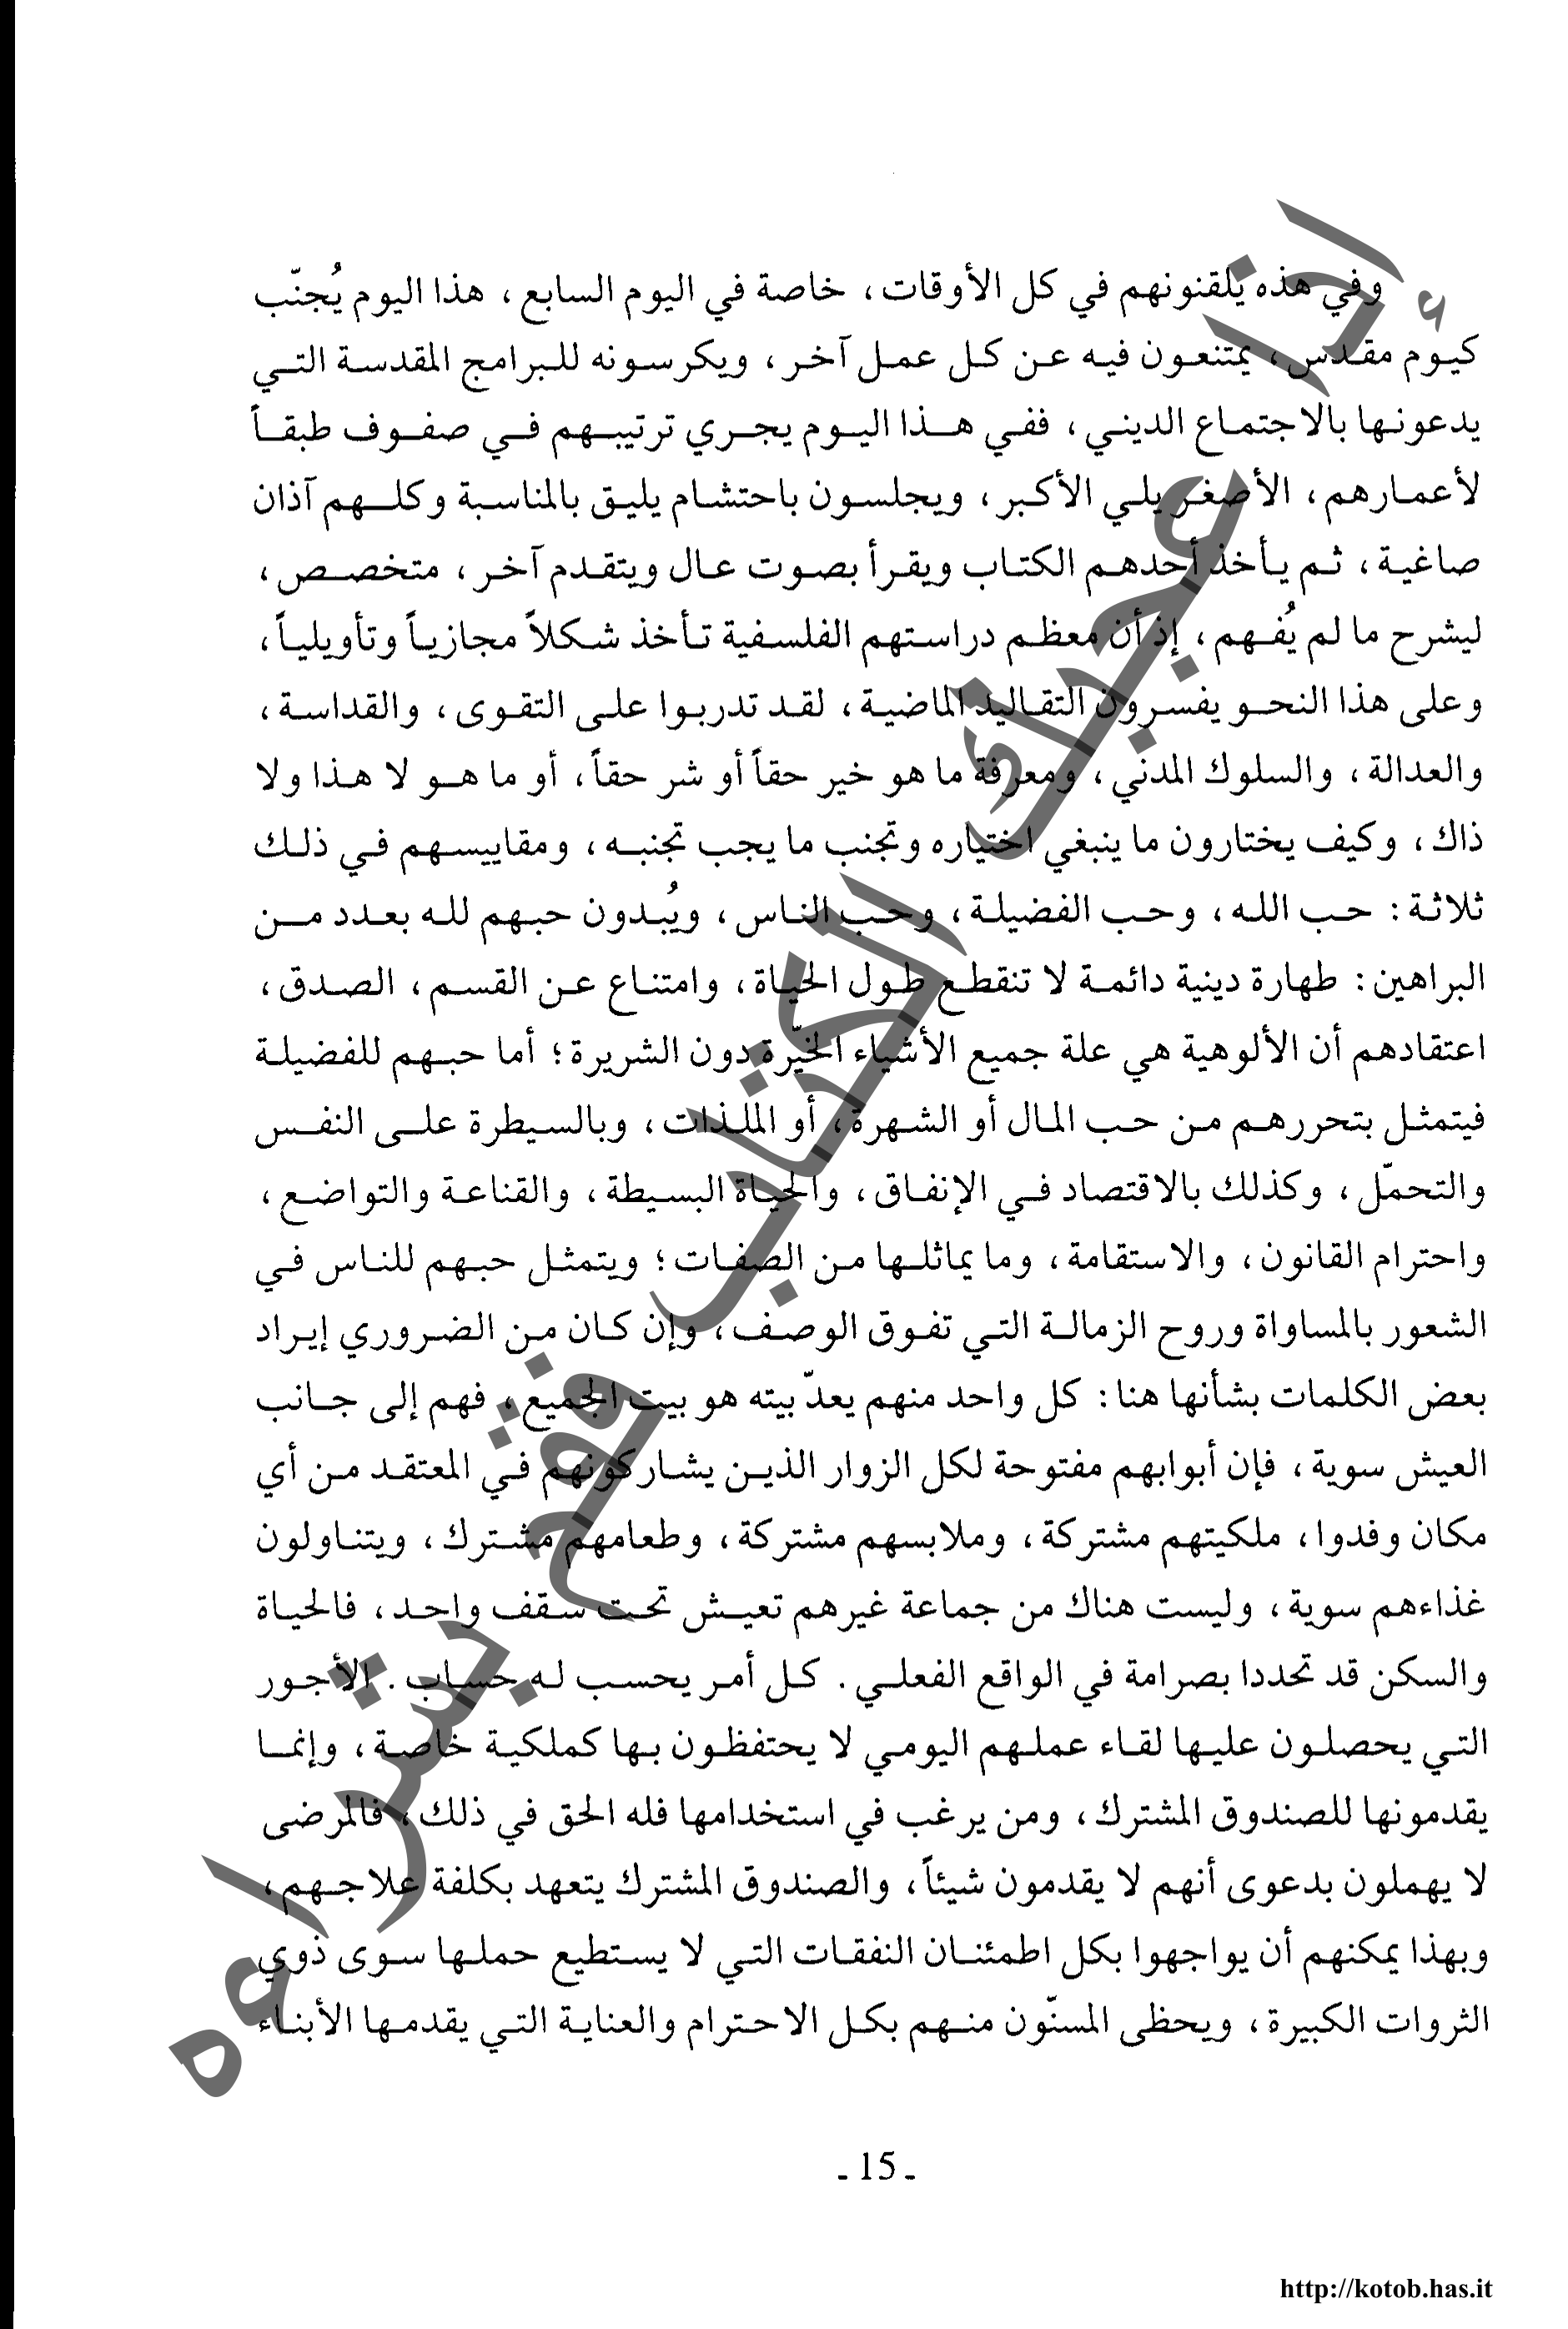 وفي هذه يلقنونهم في كل الأوقات، خاصة في اليوم السابع، هذا اليوم يُجنّب
كيوم مقدس، يمتنعون فيه عن كل عمل آخر، ويكرسونه للبرامج المقدسة التي
يدعونها بالاجتماع الديني، ففي هذا اليوم يجري ترتيبهم في صفوف طبقاً
لأعمارهم، الأصغر يلي الأكبر، ويجلسون باحتشام يليق بالمناسبة وكلهم آذان
صاغية، ثم يأخذ أحدهم الكتاب ويقرأ بصوت عال ويتقدم آخر، متخصص،
ليشرح ما لم يُفهم، إذ أن معظم دراستهم الفلسفية تأخذ شكلاً مجازياً وتأويلياً،
وعلى هذا النحو يفسرون التقاليد الماضية، لقد تدربوا على التقوى، والقداسة،
والعدالة، والسلوك المدني، ومعرفة ما هو خير حقاً أو شر حقاً، أو ما هو لا هذا ولا
ذاك، وكيف يختارون ما ينبغي اختياره وتجنب ما يجب تجنبه، ومقاييسهم في ذلك
ثلاثة: حب الله، وحب الفضيلة، وحب الناس، ويُبدون حبهم لله بعدد من
البراهين: طهارة دينية دائمة لا تنقطع طول الحياة، وامتناع عن القسم، الصدق،
اعتقادهم أن الألوهية هي علة جميع الأشياء الخيّرة دون الشريرة؛ أما حبهم للفضيلة
فيتمثل بتحررهم من حب المال أو الشهرة، أو الملذات، وبالسيطرة على النفس
والتحمّل، وكذلك بالاقتصاد في الإنفاق، والحياة البسيطة، والقناعة والتواضع،
واحترام القانون، والاستقامة، وما يماثلها من الصفات؛ ويتمثل حبهم للناس في
الشعور بالمساواة وروح الزمالة التي تفوق الوصف، وإن كان من الضروري إيراد
بعض الكلمات بشأنها هنا: كل واحد منهم يعدّ بيته هو بيت الجميع، فهم إلى جانب
العيش سوية، فإن أبوابهم مفتوحة لكل الزوار الذين يشاركونهم في المعتقد من أي
مكان وفدوا، ملكيتهم مشتركة، وملابسهم مشتركة، وطعامهم مشترك، ويتناولون
غذاءهم سوية، وليست هناك من جماعة غيرهم تعيش تحت سقف واحد، فالحياة
والسكن قد تحددا بصرامة في الواقع الفعلي. كل أمر يحسب له حساب. الأجور
التي يحصلون عليها لقاء عملهم اليومي لا يحتفظون بها كملكية خاصة، وإنما
يقدمونها للصندوق المشترك، ومن يرغب في استخدامها فله الحق في ذلك، فالمرضى
لا يهملون بدعوى أنهم لا يقدمون شيئاً، والصندوق المشترك يتعهد بكلفة علاجهم،
وبهذا يمكنهم أن يواجهوا بكل اطمئنان النفقات التي لا يستطيع حملها سوى ذوي
الثروات الكبيرة، ويحظى المسنّون منهم بكل الاحترام والعناية التي يقدمها الأبناء
إذا أعجبك الكتاب فقم بشراءه
- 15 -
http://kotob.has.it